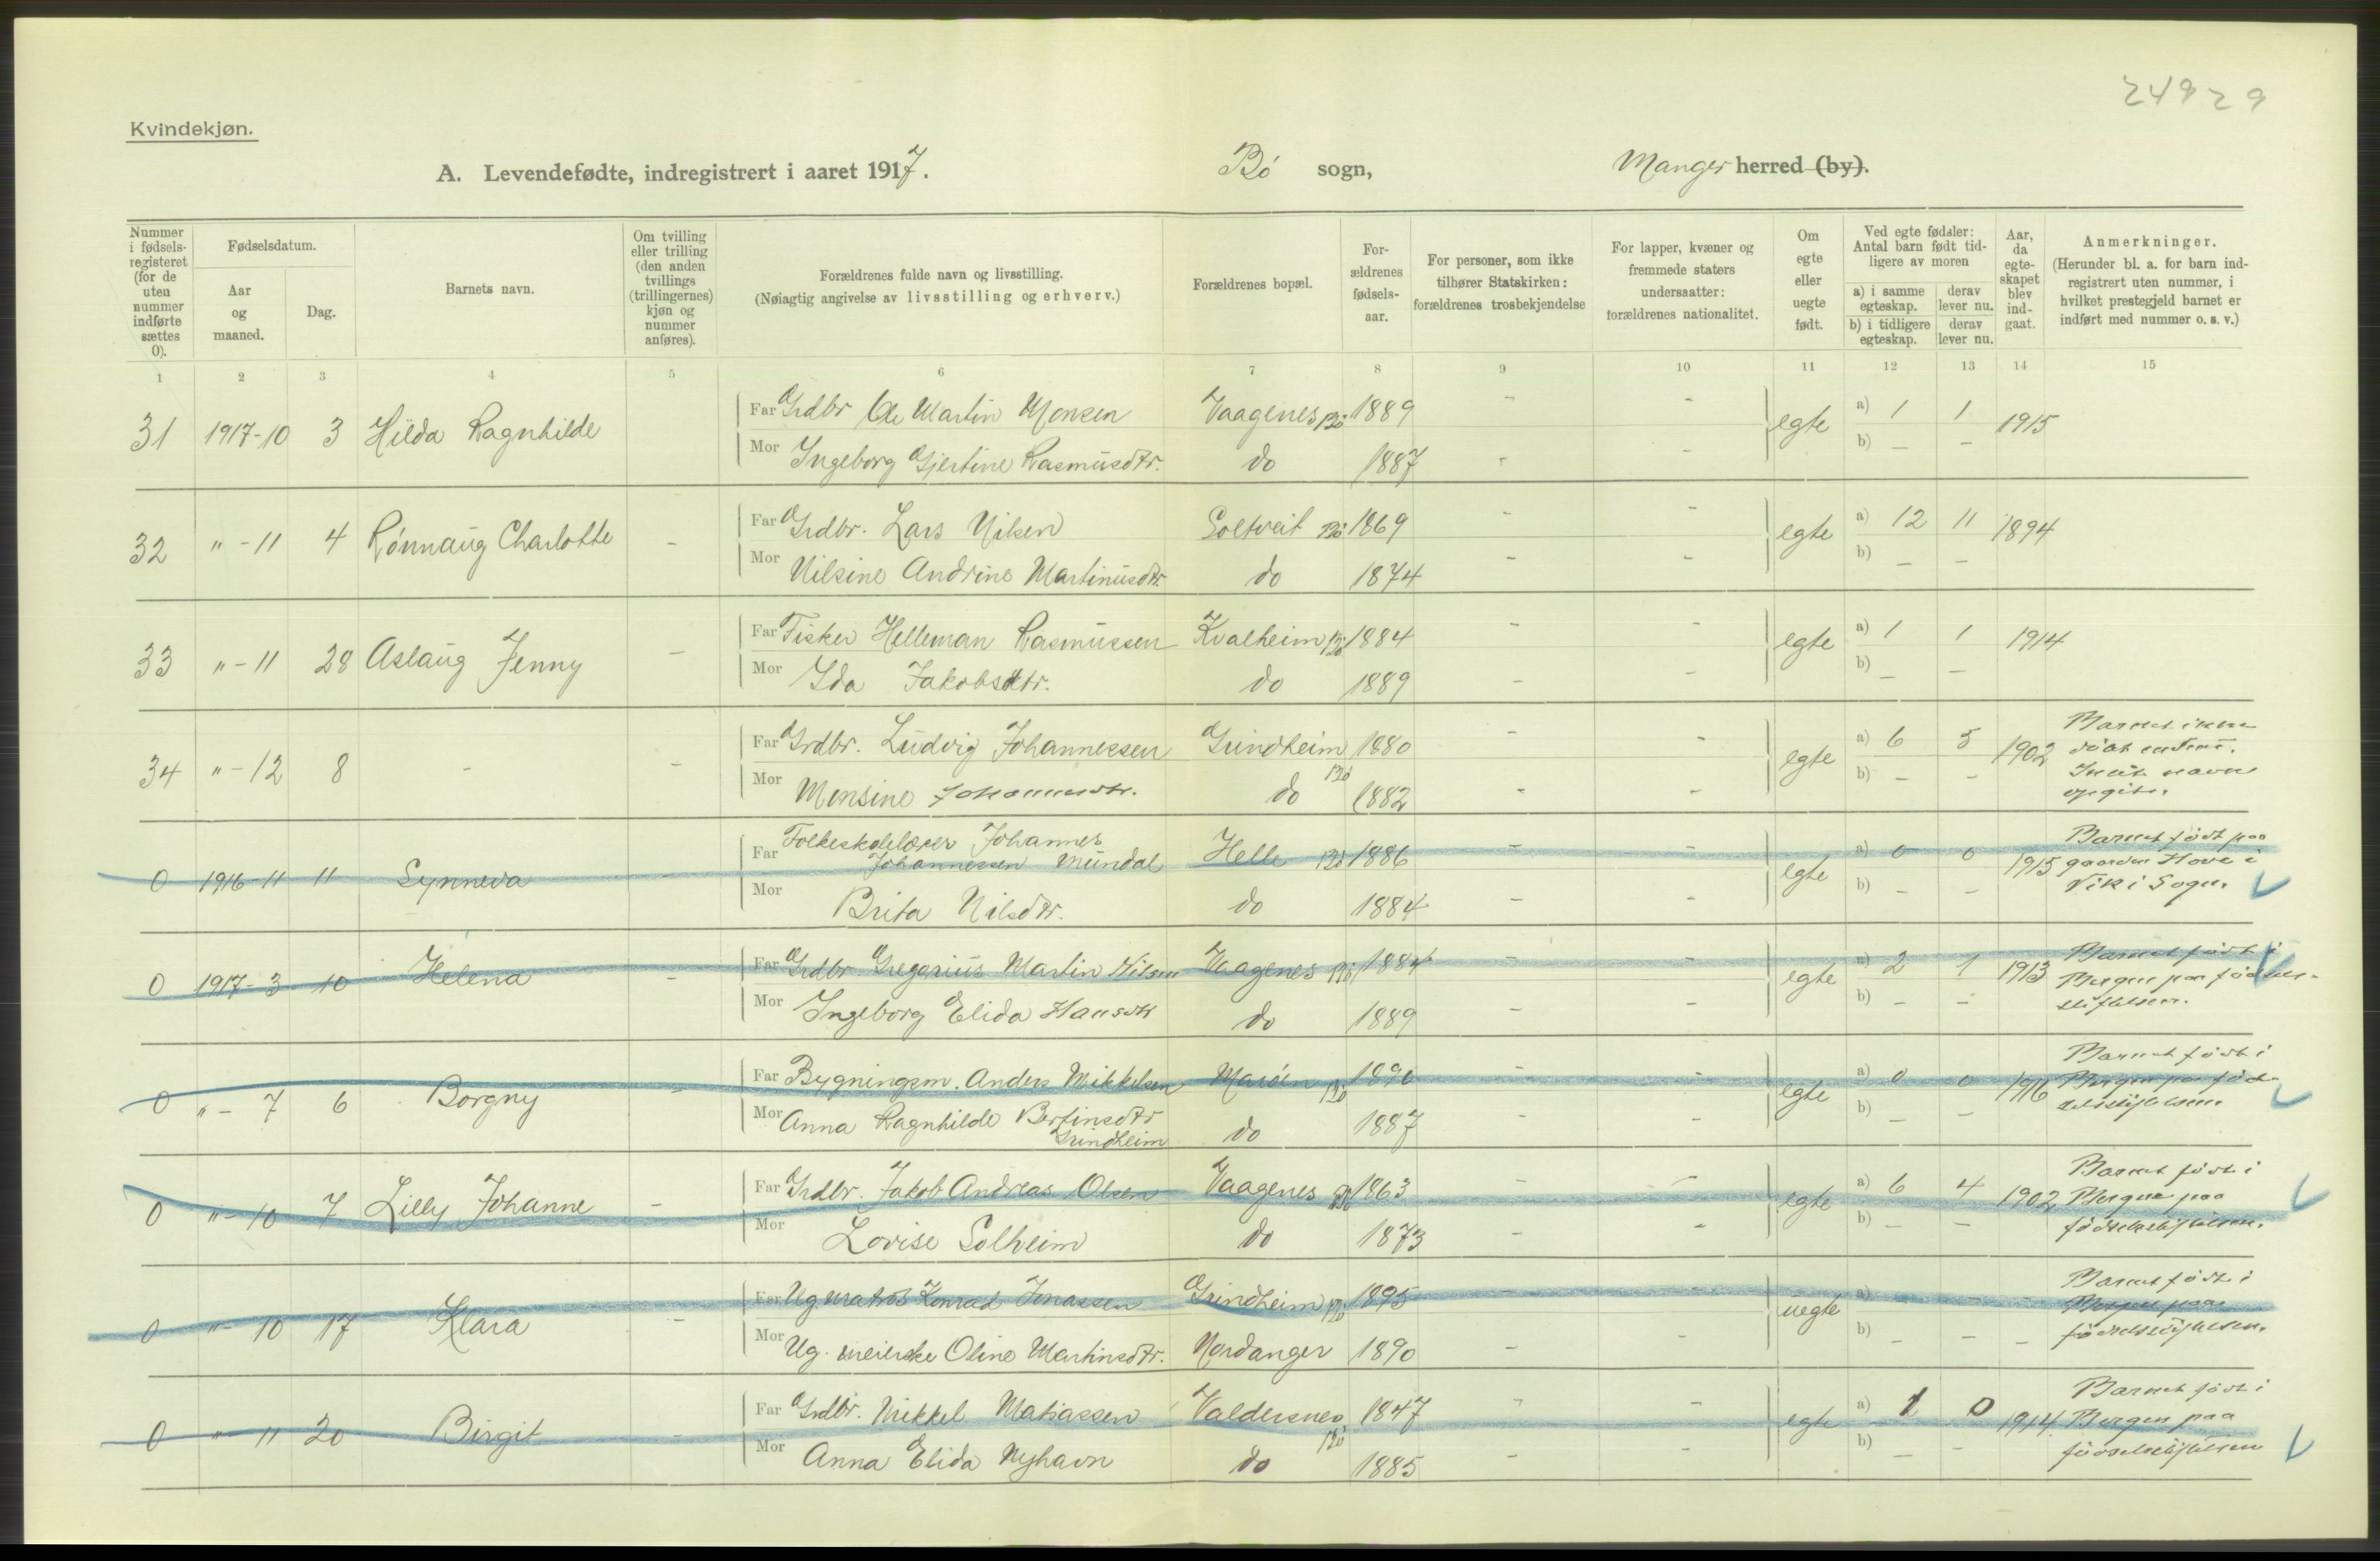 24929
Kvindekjøn.
A. Levendefødte, indregistrert i aaret 1917. Bø sogn, Manger herred (by).
Nummer i fødsels-registeret (for de uten nummer indførte sættes 0).
Fødselsdatum.
Aar og maaned.
Dag.
Barnets navn.
Om tvilling eller trilling (den anden tvillings (trillingernes) kjøn og nummer anføres).
Forældrenes fulde navn og livsstilling.
(Nøiagtig angivelse av livsstilling og erhverv.)
Forældrenes bopæl.
For-ældrenes fødsels-aar.
For personer, som ikke tilhører Statskirken: forældrenes trosbekjendelse
For lapper, kvæner og fremmede staters undersaatter: forældrenes nationalitet.
Om egte eller uegte født.
Ved egte fødsler: Antal barn født tid-ligere av moren
a) i samme egteskap. derav lever nu.
b) i tidligere egteskap. derav lever nu.
Aar, da egte-skapet blev ind-gaat.
Anmerkninger.
(Herunder bl. a. for barn ind-registrert uten nummer, i hvilket prestegjeld barnet er indført med nummer o. s. v.)
1 2 3 4 5 6 7 8 9 10 11 12 13 14 15
31 1917-10 3 Hilda Ragnhilde Far Grdbr Ole Martin Monsen Vaagenes Bø 1889 - - egte a) 1 1 1915
Mor Ingeborg Gjertine Rasmusdtr. do 1887 - - b) - -
32 " - 11 4 Rønnaug Charlotte - Far Grdbr. Lars Nilsen Soltveit Bø 1869 - - egte a) 12 11 1894
Mor Nilsine Andrine Martinusdtr. do 1874 - - b) - -
33 " - 11 28 Aslaug Jenny - Far Fisker Helleman Rasmussen Kvalheim Bø 1884 - - egte a) 1 1 1914
Mor Ida Jakobsdtr. do 1889 - - b) - -
34 " - 12 8 - - Far Grdbr. Ludvig Johannessen Grindheim Bø 1880 - - egte a) 6 5 1902 Barnet ikke
Mor Monsine Johannesdtr. do 1882 - - b) - - navn opgit.
0 1916-11 11 Synneva - Far Folkeskolelærer Johannes
Johannessen Mundal Helle Bø 1886 - - egte a) 0 0 1915 Barnet født paa gaarden Hove i Vik i Sogn.
Mor Brita Nilsdtr. do 1884 - - b) - -
0 1917-3 10 Helena - Far Grdbr. Gregorius Martin Nilsen Vaagenes Bø 1884 - - egte a) 2 1 1913 Barnet født i Bergen paa fødsels-stiftelsen.
Mor Ingeborg Elida Hansdtr do 1889 - - b) - -
0 " - 7 6 Borgny - Far Bygningsm. Anders Mikkelsen Marøen Bø 1890 - - egte a) 0 0 1916 Barnet født i Bergen paa fød-selsstiftelsen
Mor Anna Ragnhilde Bertinsdtr
Grindheim do 1887 - - b) - -
0 " - 10 7 Lilly Johanne - Far Grdbr. Jakob Andreas Olsen Vaagenes Bø 1863 - - egte a) 6 4 1902 Barnet født i Bergen paa fødselsstiftelsen.
Mor Lovise Solheim do 1873 - - b) - -
0 " - 10 17 Klara - Far Ug matros Konrad Jonassen Grindheim Bø 1895 - - uegte a) - - - Barnet født i Bergen paa fødselsstiftelsen.
Mor Ug. meierske Oline Martinsdtr. Nordanger 1890 - - b) - - -
0 " - 11 20 Birgit - Far Grdbr. Mikkel Matiassen Valdersnes Bø 1847 - - egte a) 1 0 1914 Barnet født i Bergen paa fødselsstiftelsen
Mor Anna Elida Nyhavn do 1885 - - b) - -